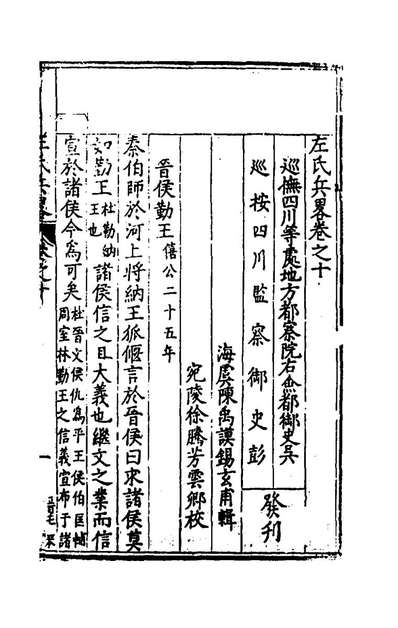 左氏兵畧卷之十
巡撫四川等處地方都察院右僉都御史吳
巡按四川監察御史彭
發刊
海虞陳禹謨錫玄甫輯
宛陵徐騰芳雲卿校
晉侯勤王僖公二十五年
秦伯師於河上將納王狐偃言於晉侯曰求諸侯莫
如勤王杜勤納王也諸侯信之且大義也繼文之業而信
宣於諸侯今爲可矣杜晉文侯仇爲平王侯伯匡輔周室林勤王之信義宣布于諸
左氏兵畧
卷之十
一